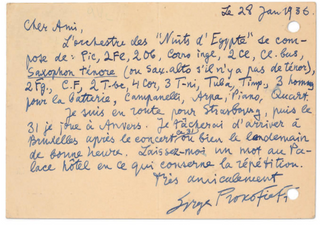 Le 28 Jan 1936.
Cher Ami,
L'orchestre des "Nuits d'Egypte" se com-
pose de: Pic, 2 Fl, 2 Ob, Corno ingl, 2 Cl, Cl. bas,
Saxophon ténore (ou Sax. alto s'il n'y a pas de ténor),
2 Fg, C.F, 2 T-be, 4 Cor, 3 T-ni, Tuba, Timp, 3 hommes
pour la batterie, Campanelli, Arpa, Piano, Quart.
Je suis en route pour Strasbourg, puis le
31 je joue à Anvers. Je tâcherai d'arriver à
Bruxelles après le concert ou bien le lendemain
de bonne heure. Laissez-moi un mot au Pa-
lace hôtel en ce qui concerne la répétition.
Très amicalement
Serge Prokofieff